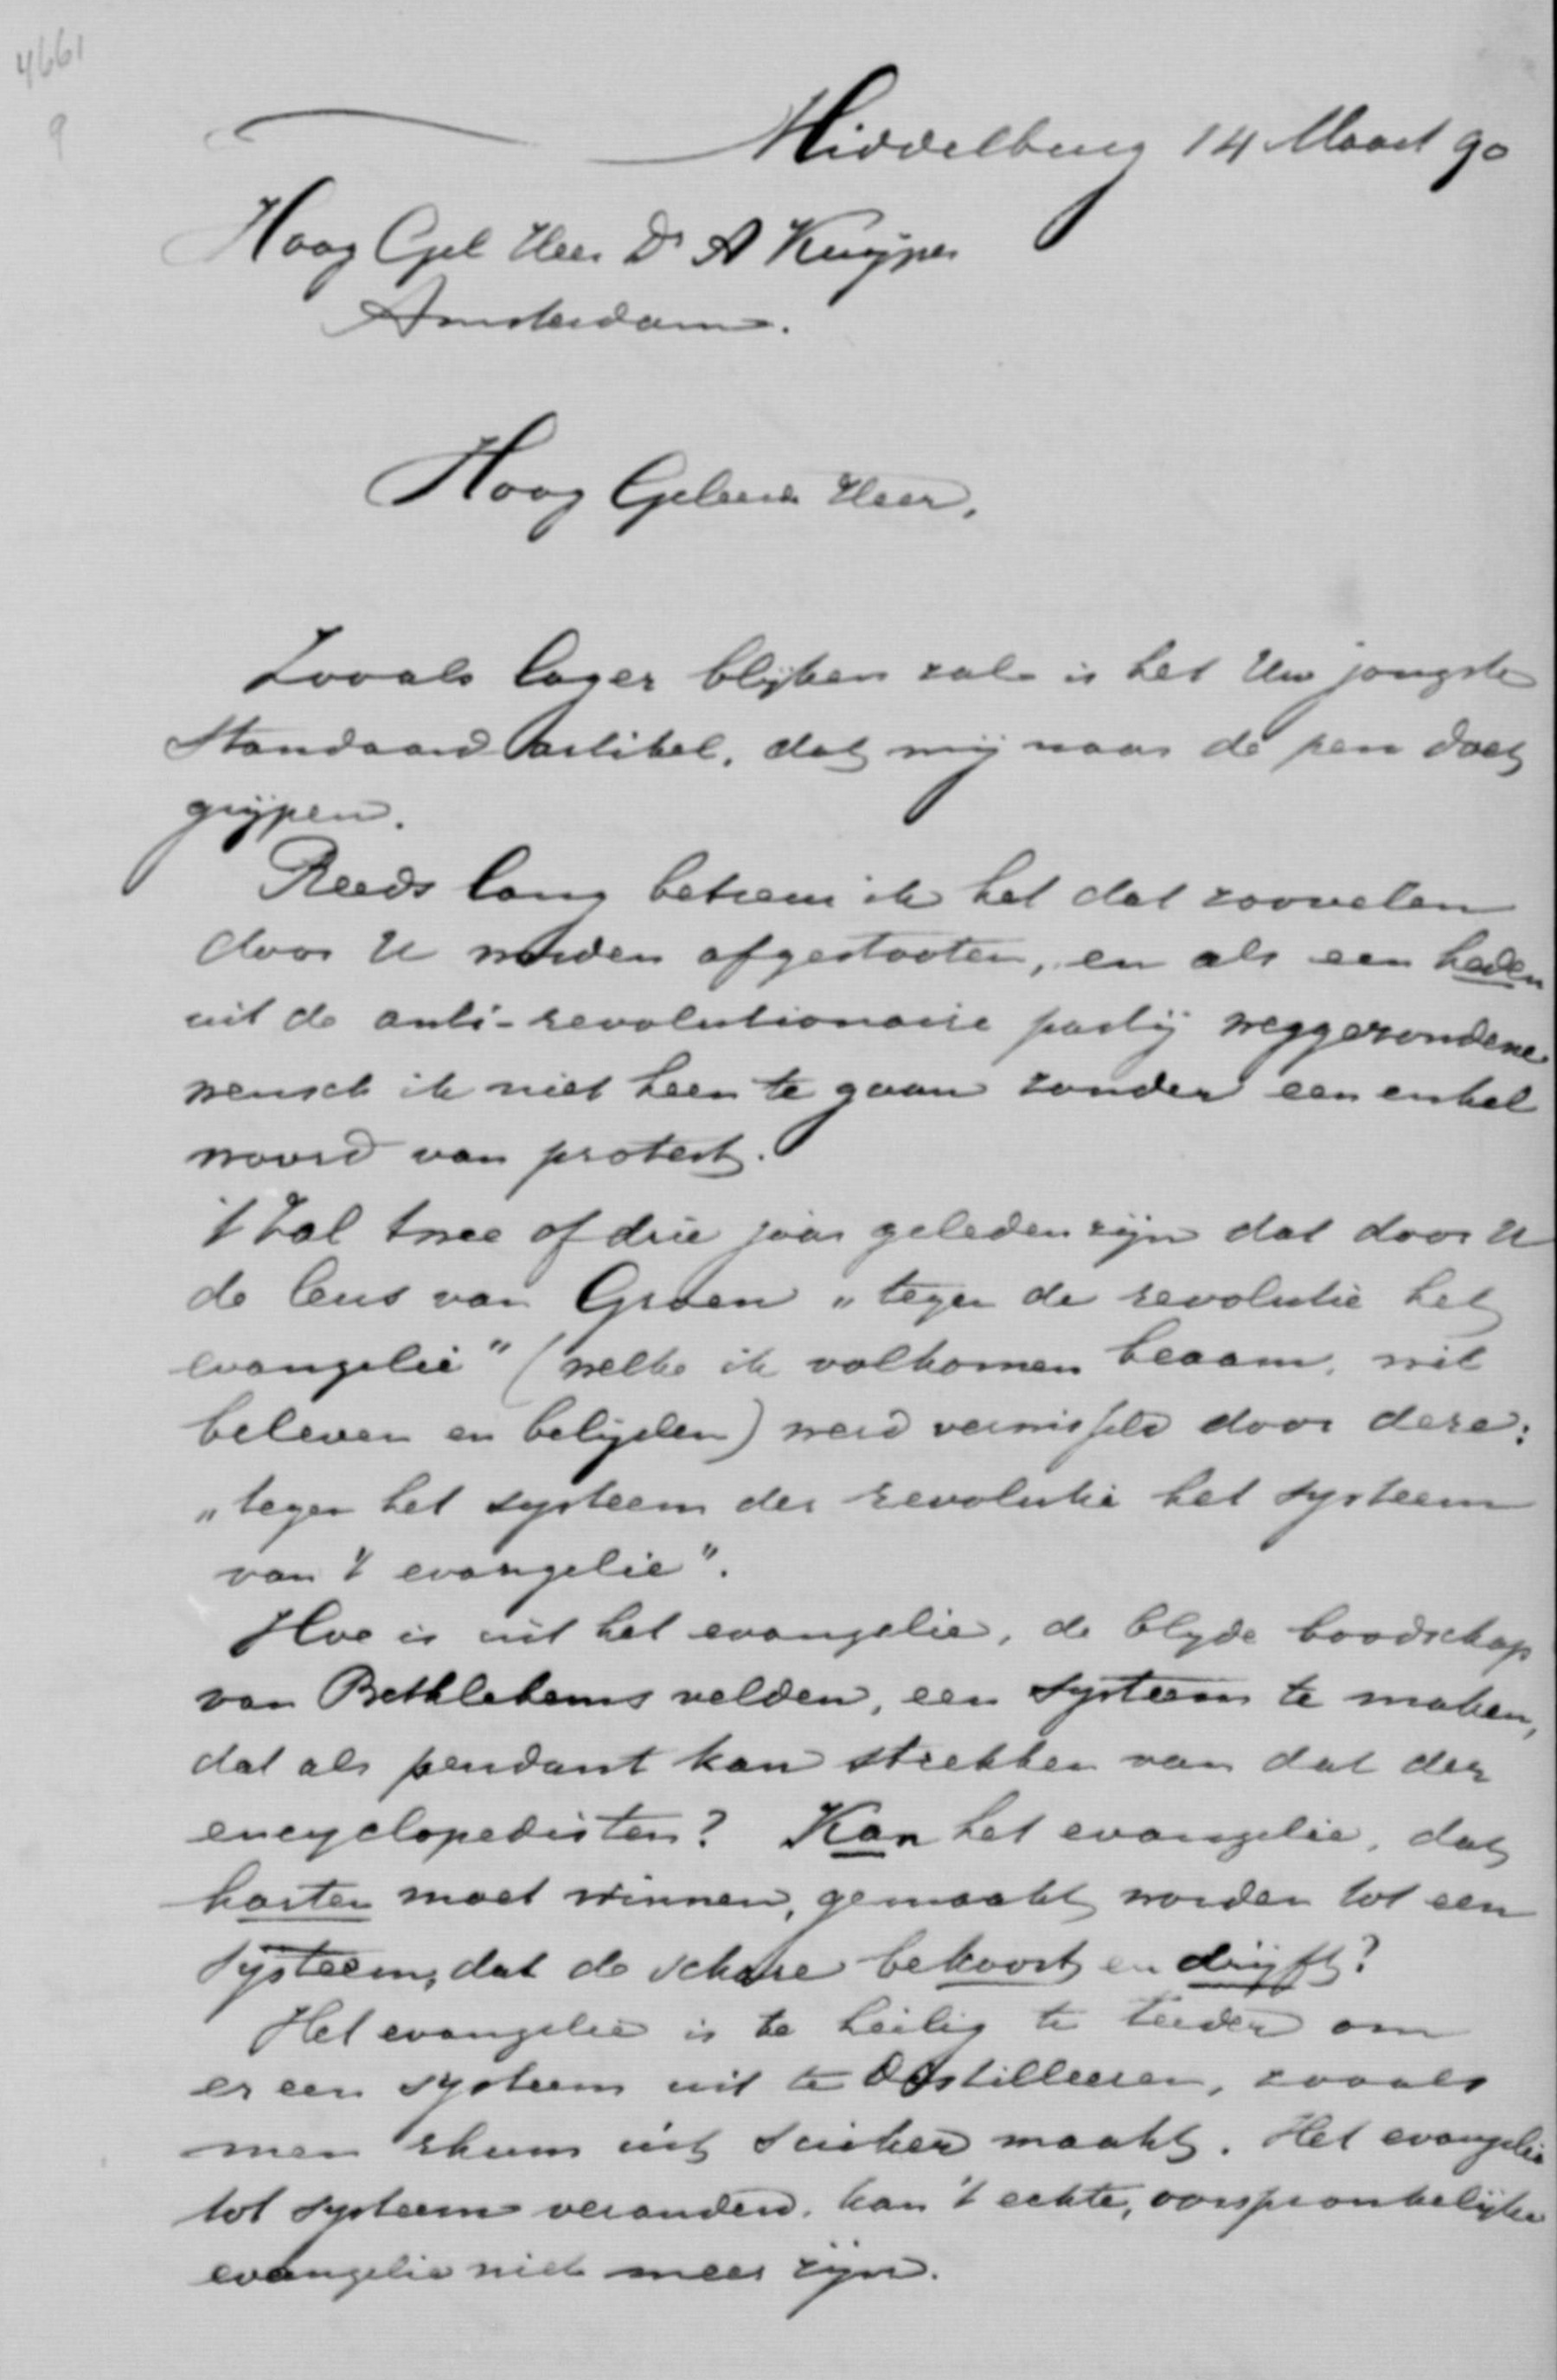 4661
9
Middelburg 14 Maart 90
Hoog Gel Heer Dr A Kuyper
Amsterdam.
Hoog Geleerde Heer,
Zooals lager blijken zal is het Uw jongste
Standaard artikel, dat mij naar de pen doet
grijpen.
Reeds lang betreur ik het dat zoovelen
door U worden afgestooten, en als een heden
uit de anti-revolutionaire partij weggezondene
wensch ik niet heen te gaan zonder een enkel
woord van protest.
't Zal twee of drie jaar geleden zijn dat door U
de leus van Groen „tegen de revolutie het
evangelie" (welke ik volkomen beaam, wil
beleven en belijden) werd verwisseld door deze:
„tegen het systeem der revolutie het systeem
van 't evangelie".
Hoe is uit het evangelie, de blyde boodschap
van Bethlehems velden, een systeem te maken,
dat als pendant kan strekken van dat der
encyclopedisten? Kan het evangelie, dat
harten moet winnen, gemaakt worden tot een
systeem, dat de schare bekoort en drijft?
Het evangelie is te heilig te teeder om
er een systeem uit te distilleeren, zooals
men rhum uit suiker maakt. Het evangelie
tot systeem veranderd, kan 't echte, oorspronkelijke
evangelie niet meer zijn.